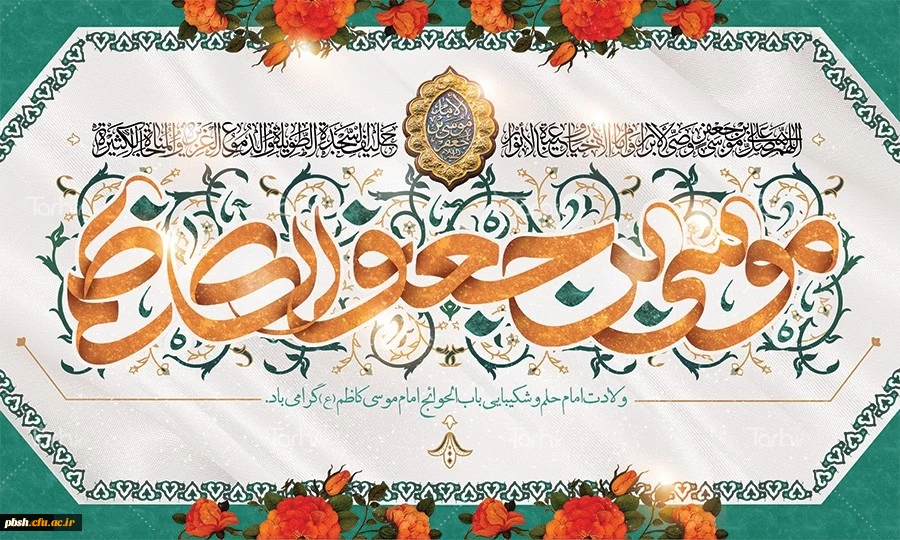 اللهم صل علی موسی بن جعفر وصی الابرار و امام الاخیار و عیبة الانوار
الامام موسی بن جعفر
حلیف السجدة الطویلة و الدموع الغزیرة و المناجاة الکثیرة
موسی بن جعفر الکاظم
ولادت امام حلم و شکیبایی باب الحوائج امام موسی کاظم (ع) گرامی باد.
Tarhi
pbsh.cfu.ac.ir